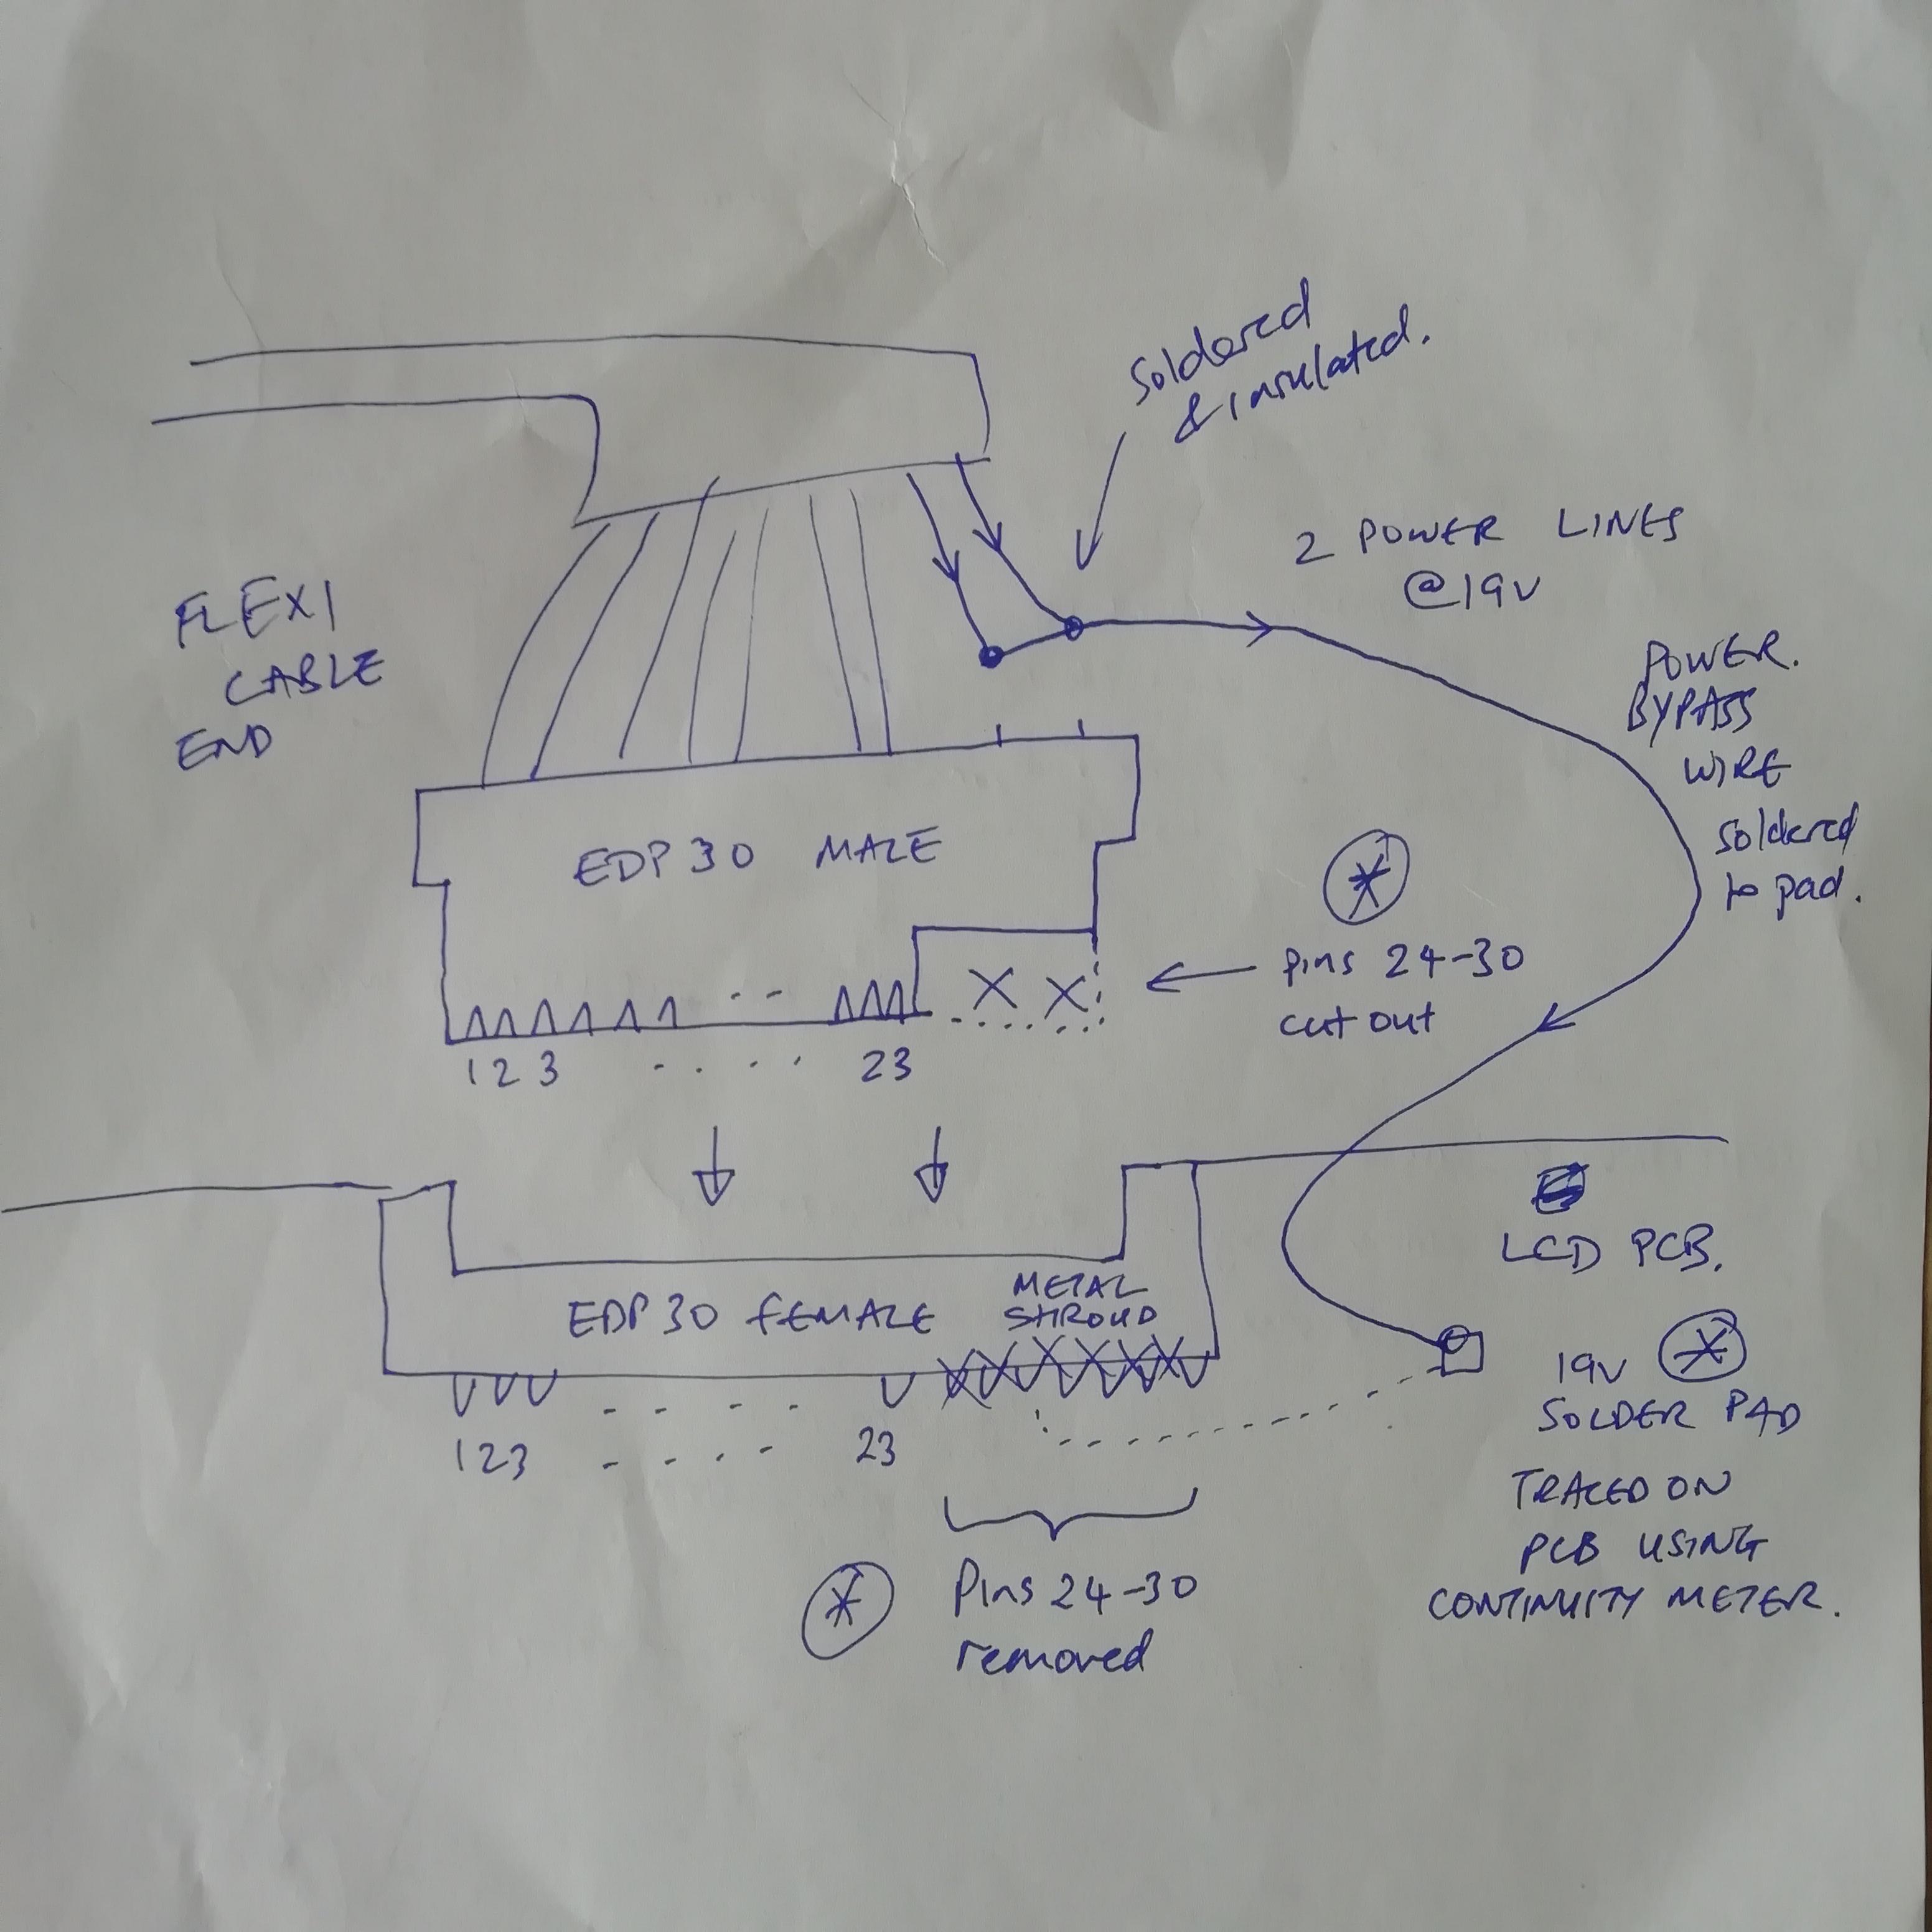 Soldered
& insulated.
2 POWER LINES
@19V
FLEXI
CABLE
END
POWER.
BYPASS
WIRE
soldered
to pad.
EDP30 MALE
pins 24-30
cut out
1 2 3 - . . ' 23
LCD PCB.
METAL
SHROUD
EDP30 FEMALE
19V
SOLDER PAD
TRACED ON
PCB USING
CONTINUITY METER.
123 - - . - 23
Pins 24-30
removed